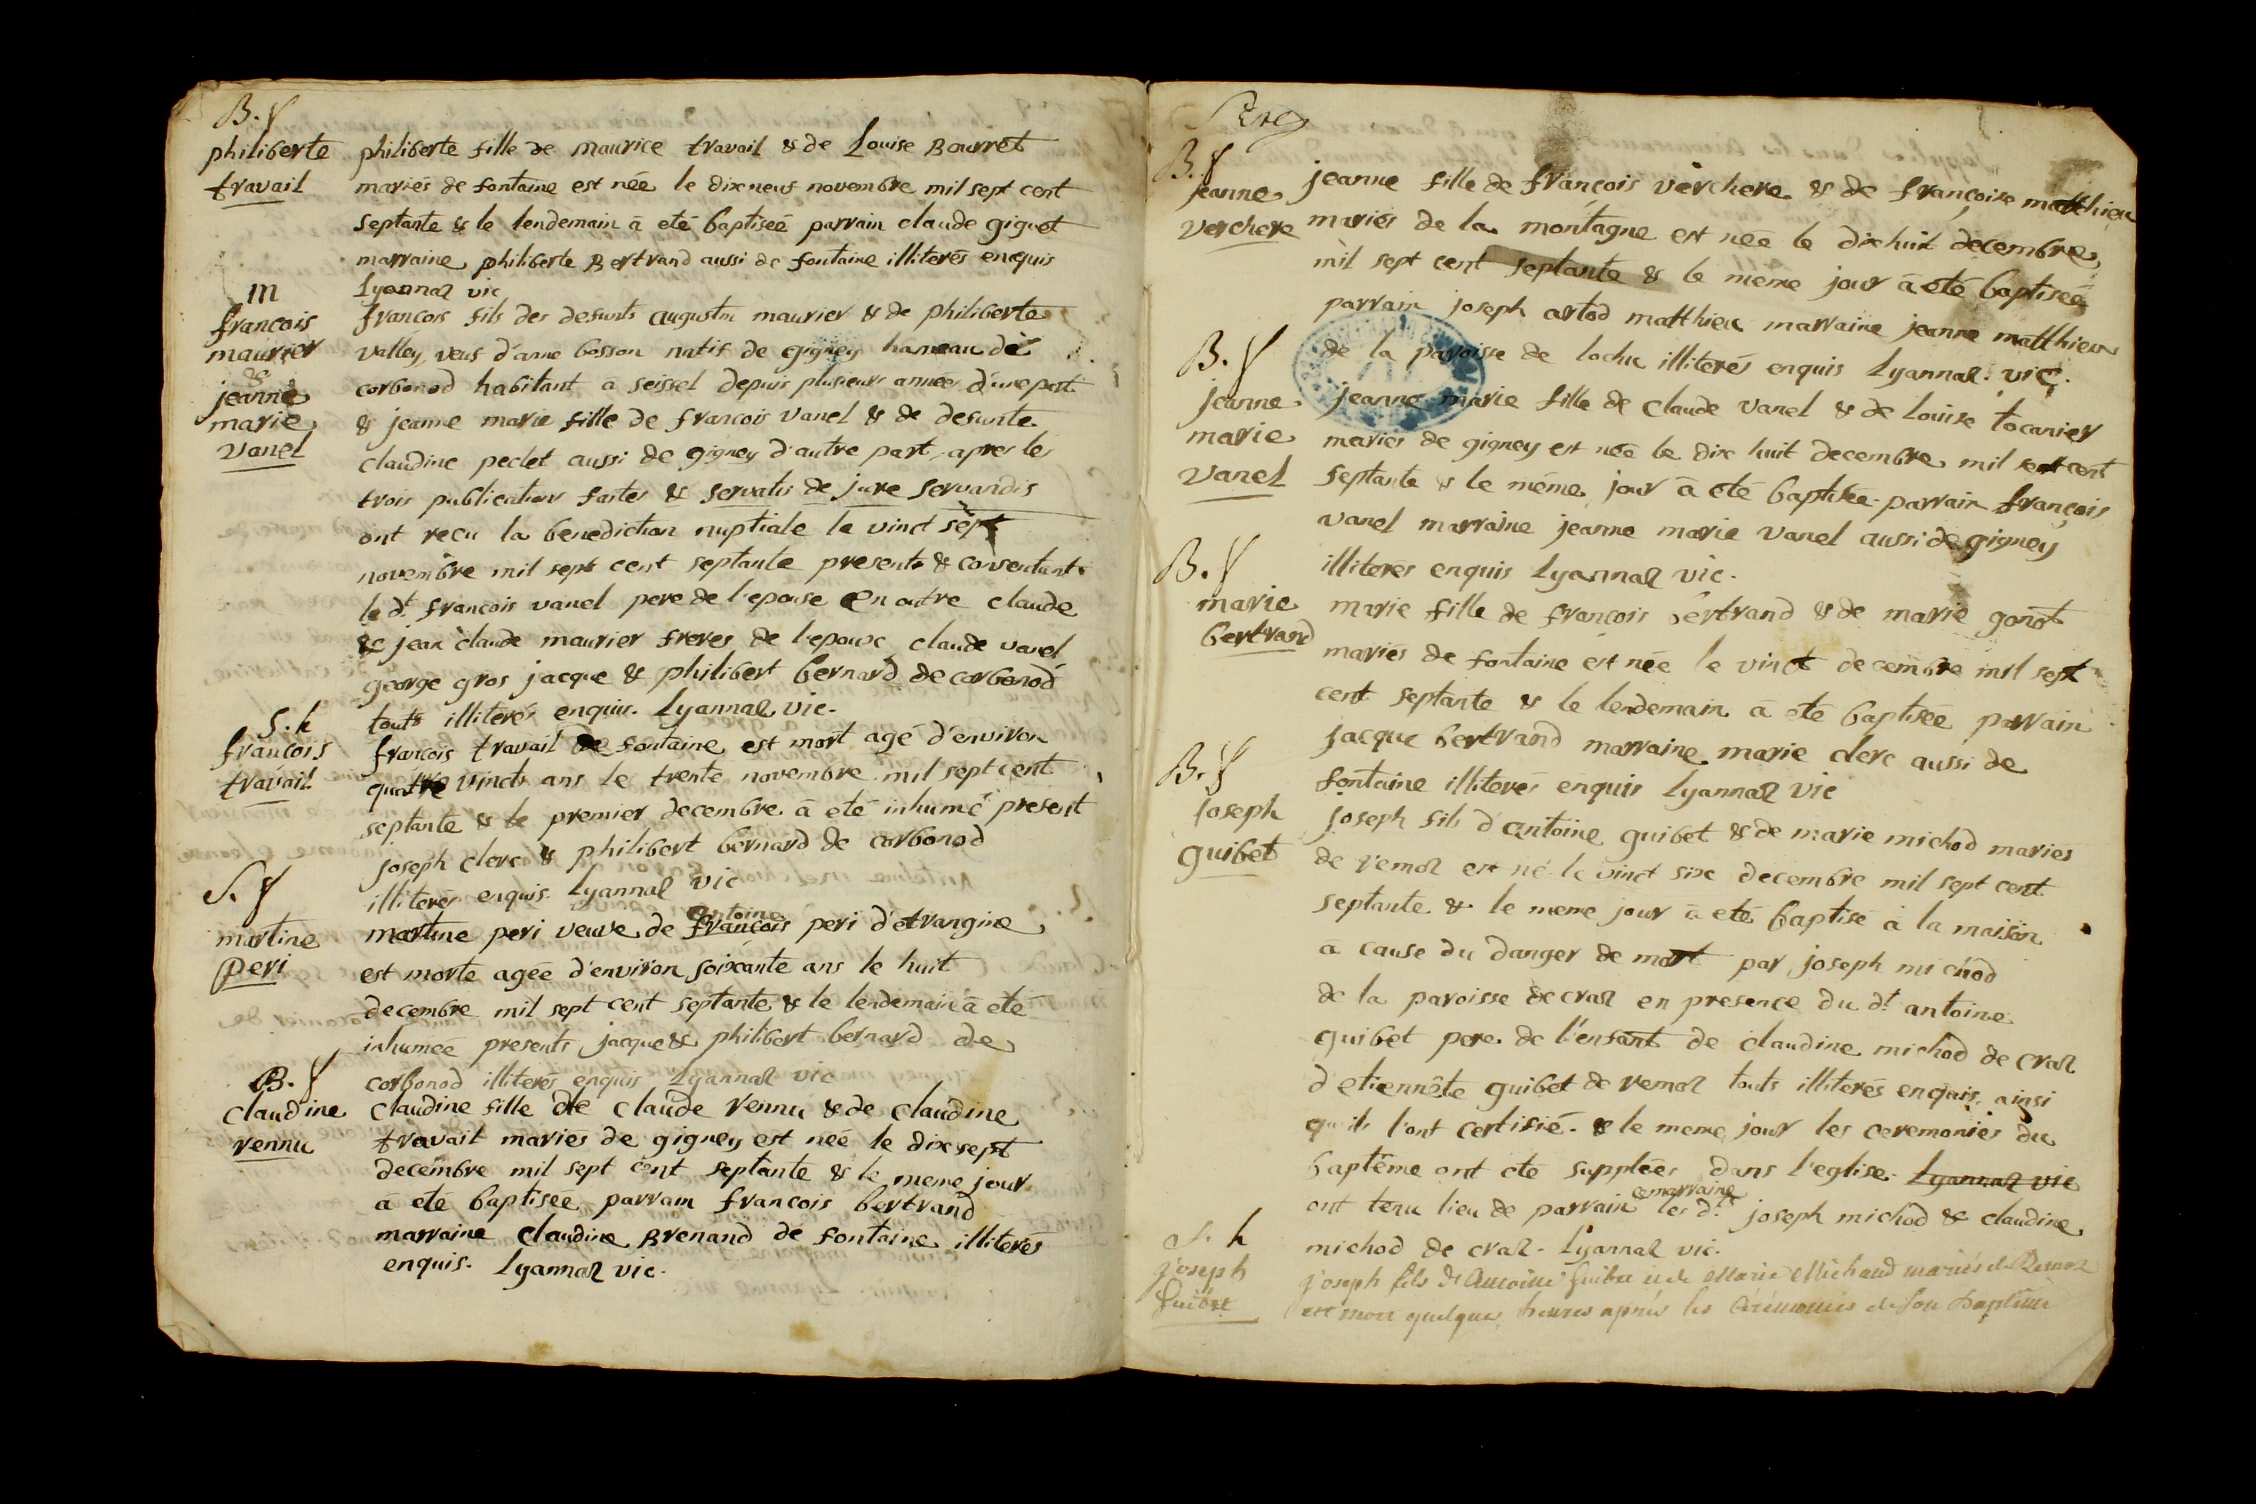 B. f
philiberte
travail
philiberte fille de maurice travail & de Louise Bourret
mariés de fontaine est née le dix neuf novembre mil sept cent
septante & le lendemain à eté baptiseé parrain claude giguet
marraine philiberte Bertrand aussi de fontaine illiterés enquis
Lyannaz vic
m
francois
maurier
&
jeanne
marie
vanel
francois fils des defunts augustin maurier & de philiberte
valley, veuf d'anne bosson natif de gigney hameau de
corbonod habitant à seissel depuis plusieurs années d'une part
& jeanne marie fille de francois vanel & de defunte
claudine peclet aussi de gigney d'autre part, apres les
trois publications faites & servatis de jure servandis
ont recu la benediction nuptiale le vinct sept
novembre mil sept cent septante presents & consentant
le dt. francois vanel pere de l'epouse en outre claude
& jean claude maurier freres de l'epoux, claude vanel
george gros jacque & philibert bernard de corbonod
touts illiterés enquis. Lyannaz vic.
S. h
francois
travail
francois travail de fontaine est mort agé d'environ
quatre vincts ans le trente novembre mil sept cent
septante & le premier decembre à eté inhumé present
joseph clerc & philibert bernard de corbonod
illiterés enquis. Lyannaz vic
S. f
martine
peri
antoine
martine peri veuve de françois peri d'etrangine
est morte agée d'environ soixante ans le huit
decembre mil sept cent septante & le lendemain à eté
inhumeé presents jacque & philibert bernard de
corbonod illiterés enquis Lyannaz vic
B. f
claudine
vennu
claudine fille de claude vennu & de claudine
travail mariés de gigney est neé le dix sept
decembre mil sept cent septante & le meme jour
à eté baptiseé parrain francois bertrand
marraine claudine Brenand de fontaine illiterés
enquis. Lyannaz vic.
B. f
jeanne
verchere
jeanne fille de françois verchere & de françoise matthieu
mariés de la montagne est neé le dix huit decembre
mil sept cent septante & le meme jour à eté baptiseé
parrain joseph artod matthieu marraine jeanne matthieu
de la paroisse de illiterés enquis Lyannaz. vic.
B. f
jeanne
marie
vanel
jeanne marie fille de claude vanel & de louise tocanier
mariés de gigney est neé le dix huit decembre mil sept cent
septante & le même jour à eté baptiseé. parrain françois
vanel marraine jeanne marie vanel aussi de gigney
illiteres enquis Lyannaz vic.
B. f
marie
bertrand
marie fille de francois bertrand & de marie gonot
mariés de fontaine est née le vinct decembre mil sept
cent septante & le lendemain à eté baptiseé parrain
jacque bertrand marraine marie clerc aussi de
fontaine illiterés enquis Lyannaz vic
B. f
joseph
guibet
joseph fils d'antoine guibet & de marie michod mariés
de remoz est né le vinct six decembre mil sept cent
septante & le meme jour à eté baptisé à la maison
à cause du danger de mort par joseph michod
de la paroisse de craz en presence du dt. antoine
guibet pere de l'enfant de claudine michod de craz
d'etiennête guibet de remoz touts illiterés enquis, ainsi
qu'ils l'ont certifié. & le meme jour les ceremonies du
baptême ont eté suppleés dans l'eglise. Lyannaz vic
& marraine
ont tenu lieu de parrain les dts. joseph michod & claudine
michod de craz. Lyannaz vic.
S. h
joseph
Guibet
joseph fils d'Antoine Guibet et de Marie Michaud mariés de Remoz
est mort quelques heures après les Cérémonies de son Baptême